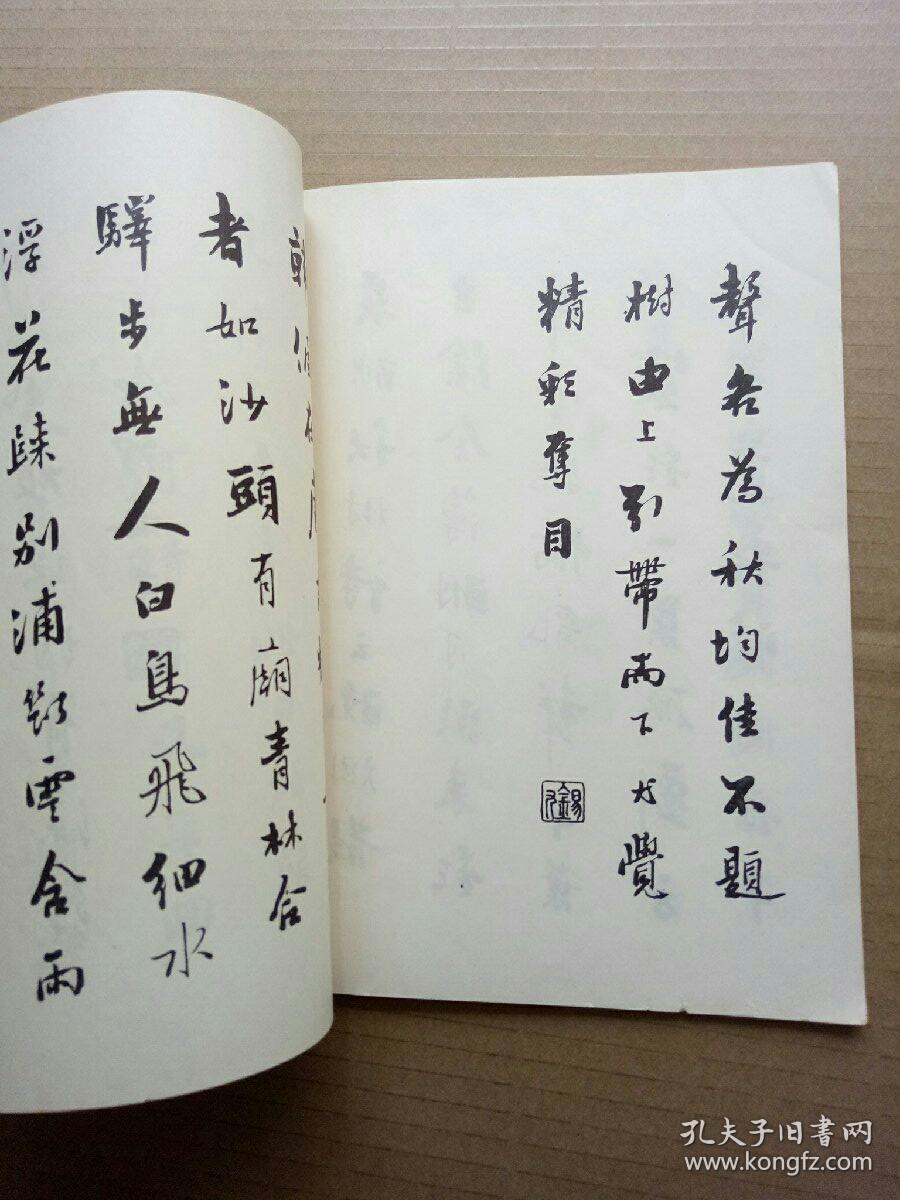 聲各為秋均佳不題
樹由上引帶而下尤覺
精彩奪目
者如沙頭有廟青林合
驛步無人白鳥飛細水
浮花歸別浦斷雲含雨
孔夫子旧书网
www.kongfz.com